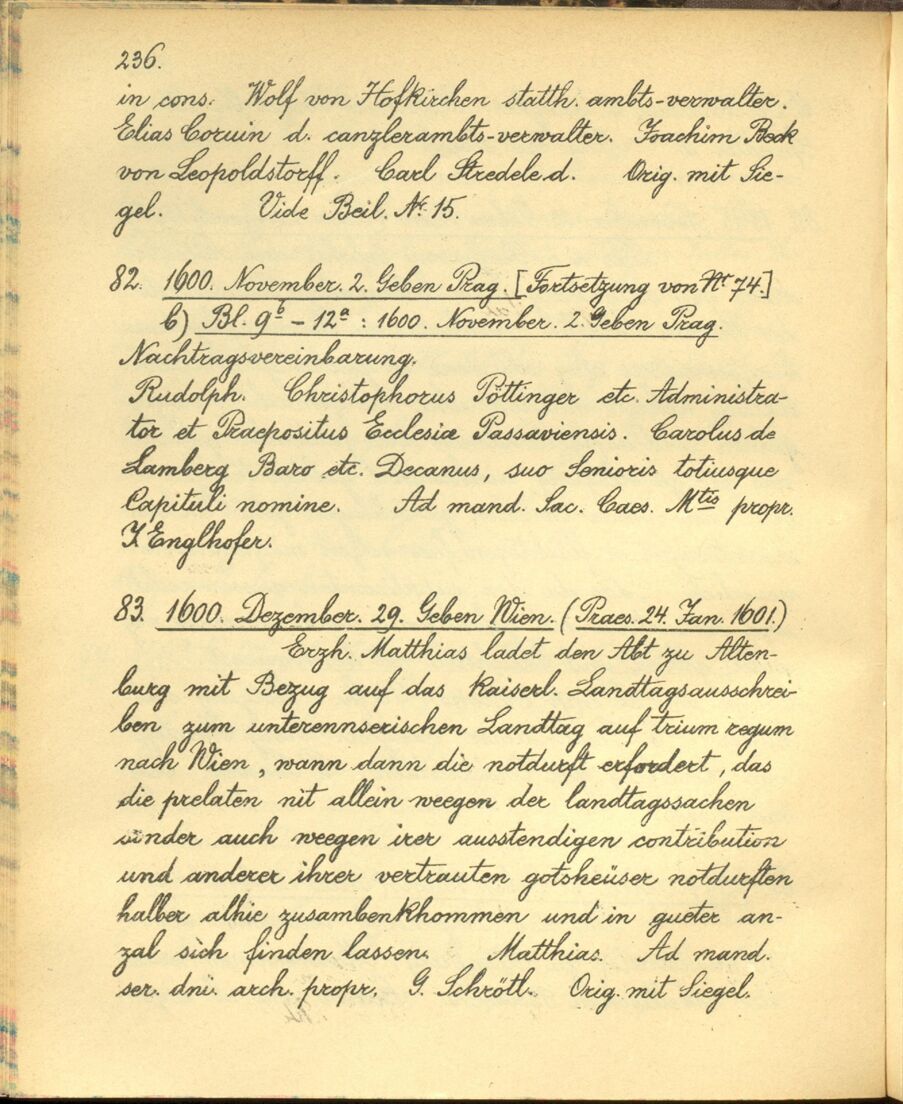 236.
in cons. Wolf von Hofkirchen statth. ambts-verwalter.
Elias Coruin d. canzlerambts-verwalter. Joachim Beck
von Leopoldstorff. Carl Stredele d. Orig. mit Sie-
gel. Vide Beil. Nr. 15.
82. 1600. November. 2. Geben Prag. [Fortsetzung von Nr 74.]
b) Bl. 9b – 12a : 1600. November. 2. Geben Prag.
Nachtragsvereinbarung.
Rudolph. Christophorus Pöttinger etc. Administra-
tor et Praepositus Ecclesiæ Passaviensis. Carolus de
Lamberg Baro etc. Decanus, suo Senioris totiusque
Capituli nomine. Ad mand. Sac. Caes. Mtis propr.
J Englhofer.
83. 1600. Dezember. 29. Geben Wien. (Praes. 24. Jan. 1601.)
Erzh. Matthias ladet den Abt zu Alten-
burg mit Bezug auf das kaiserl. Landtagsausschrei-
ben zum unterennserischen Landtag auf trium regum
nach Wien, wann dann die notdurft erfordert, das
die prelaten nit allein weegen der landtagssachen
sonder auch weegen irer ausstendigen contribution
und anderer ihrer vertrauten gotsheüser notdurften
halber alhie zusambenkhommen und in gueter an-
zal sich finden lassen. Matthias. Ad mand.
ser. dni. arch. propr. G. Schrötl. Orig. mit Siegel.